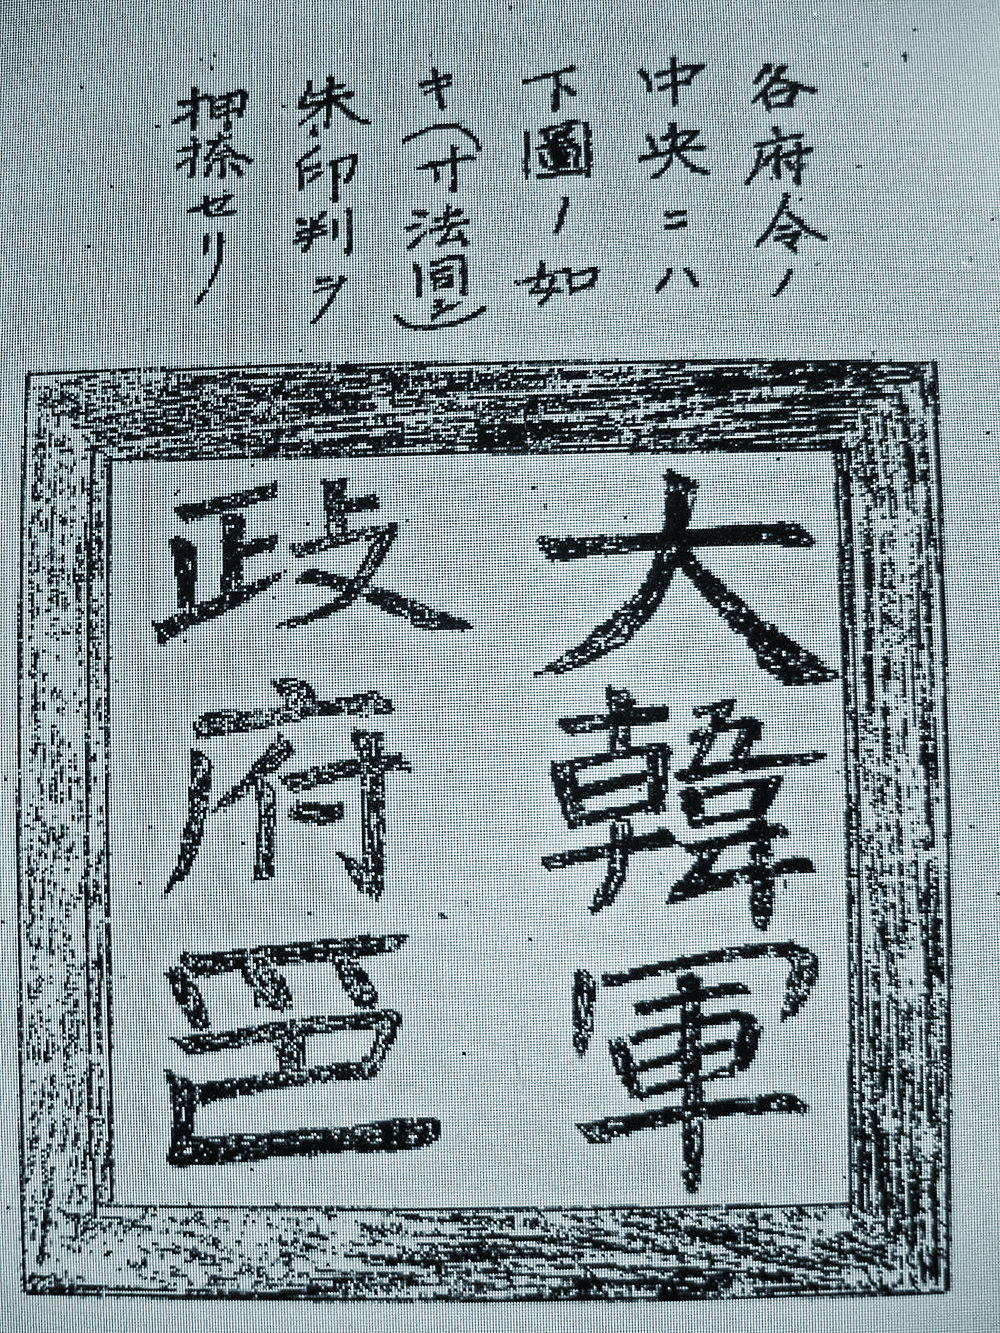 各府令ノ
中央ニハ
下圖ノ如
キ(寸法同)
朱印判ヲ
押捺セリ
大韓軍
政府印